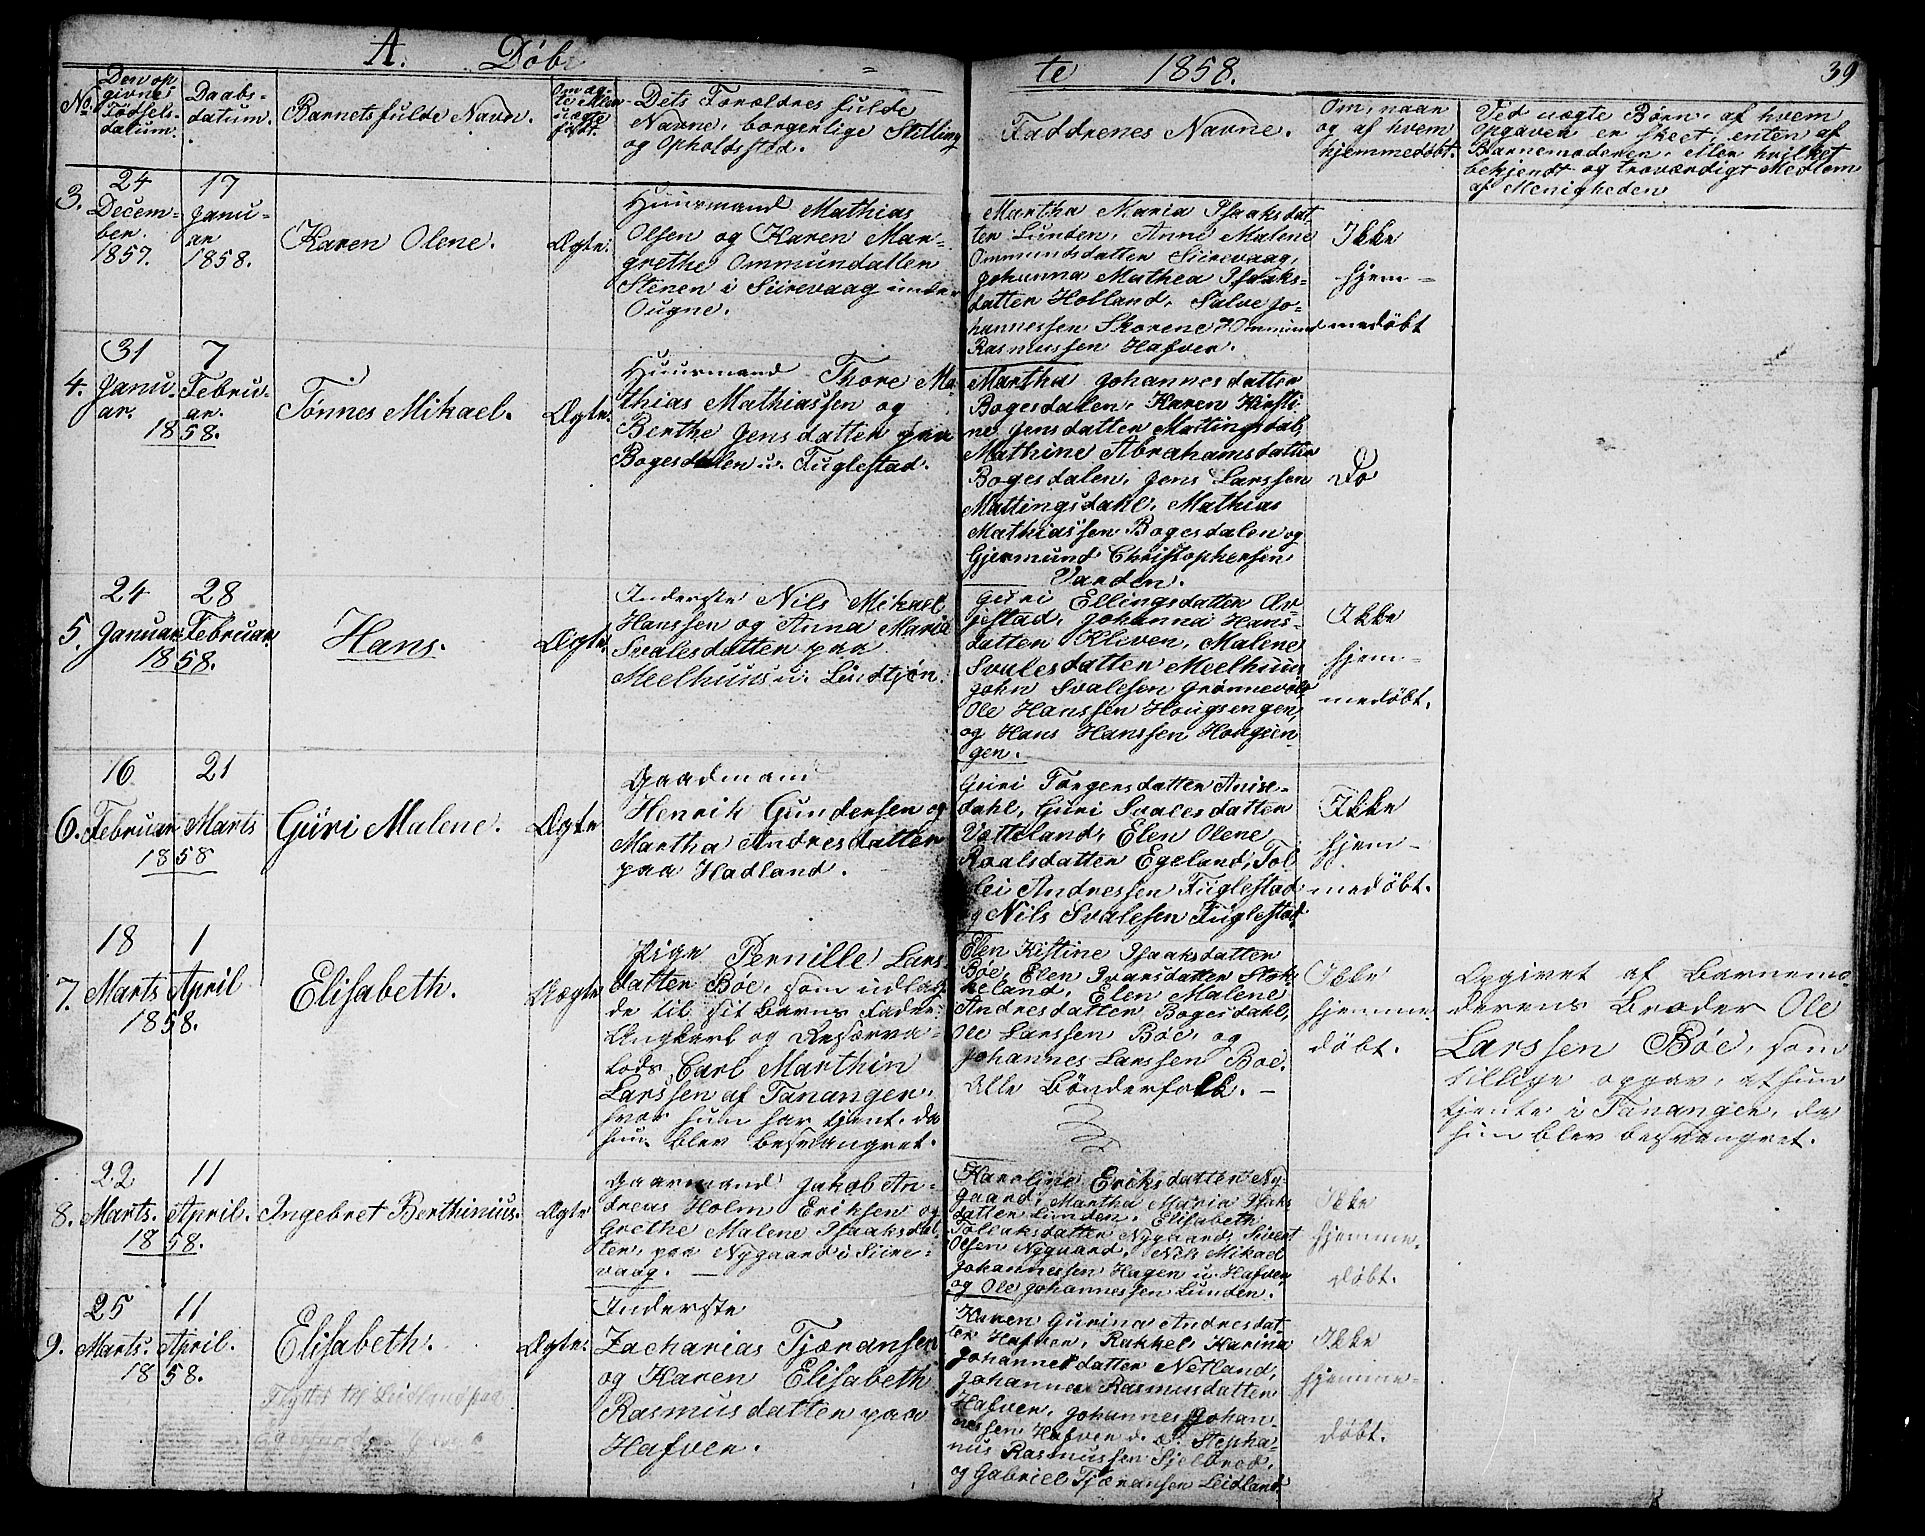 A. Døbte 1858. 39
No.
Den opgivne Fødselsdatum.
Daabsdatum.
Barnets fulde Navn.
Om ægte eller uægte født.
Dets Forældres fulde
Navne, borgerlige Stilling
og Opholdssted.
Faddrenes Navne.
Om, naar
og af hvem
hjemmedøbt.
Ved uægte Børn: af hvem
Opgaven er skeet, enten af
Barnemoderen, eller hvilket
bekjendt og troværdigt Medlem
af Menigheden
3.
24
Decem-
ber.
1857.
17
Janu-
ar
1858.
Karen Olene.
Ægte
Huusmand Mathias
Olsen og Karen Mar-
grethe Ommundatter
Stenen i Siirevaag under
Ougne.
Martha Maria Isaaksdat-
ter Lunden, Anne Malene
Ommundsdatter Siirevaag,
Johanna Mathea Isaaks-
datter Holland, Salve Jo-
hannessen Skorene, Ommund
Rasmussen Hafven.
Ikke
hjem-
medøbt
4.
31
Janu-
ar.
7
Febru-
ar.
1858.
Tønnes Mikael.
Ægte.
Huusmand Thore Ma-
thias Mathiassen og
Berthe Jensdatter paa
Bogesdalen u. Fuglestad.
Martha Johannesdatter
Bogesdalen, Karen Kirsti-
ne Jensdatter Mattingsdal,
Mathine Abrahamsdatter
Bogesdalen, Jens Larssen
Mattingsdahl, Mathias
Mathiassen Bogesdalen og
Gjermund Christophersen
Varden.
Do
5.
24
Januar
28
Februar.
1858.
Hans.
Ægte
Inderste Nils Mikael
Hanssen og Anna Maria
Svalesdatter paa
Meelhuus u. Leidtjøn.
Guri Ellingsdatter Æv-
jestad, Johanna Hans-
datter Kliven, Malene
Svalesdatter Meelhuus
John Svalesen Grønnevold
Ole Hanssen Hougsengen,
og Hans Hanssen Hougsen-
gen.
Ikke
hjem-
medøbt.
6.
16
Februar
21
Marts
1858
Guri Malene.
Ægte
Gaadmand
Henrik Gundersen og
Martha Andresdatter
paa Hadland.
Guri Torgersdatter Anise-
dahl, Guri Svalesdatter
Vetteland, Elen Olene
Roalsdatter Egeland, Tol-
lei Andressen Fuglestad
og Nils Svalesen Fuglestad
Ikke
hjem-
medøbt.
7.
18
Marts
1
April
1858.
Elisabeth.
Uægte
Pige Pernille Lars-
datter Bøe, som udlag-
de til sit Barns Fader:
Ungkarl og Reserva-
lods Carl Marthin
Larssen af Tananger,
hvor hun har tjent, da
hun blev besvangret.
Elen Kistine Isaaksdatter
Bøe, Elen Ivarsdatter Stok-
keland, Elen Malene
Andresdatter Bogesdahl,
Ole Larssen Bøe, og
Johannes Larssen Boe.
Alle Bønderfolk. -
Ikke
hjemme-
døbt.
Opgivet af Barnemo-
derens Broder Ole
Larssen Bøe, som
tillige opgav, at hun
tjente i Tananger, da
hun blev besvangret.
8.
22
Marts.
11
April.
1858.
Ingebret Berthinius.
Ægte
Gaarmand Jakob An-
dreas Holm Eriksen og
Grethe Malene Isaaksdat-
ter, paa Nygaard i Siire-
vaag.
Karoline Eriksdatter Ny-
gaard, Martha Maria Isaks-
datter Lunden, Elisabeth
Tollaksdatter Nygaard, Sivert
Olsen Nygaard, Nils Mikael
Johannessen Hagen u. Hafven
og Ole Johannessen Lunden.
Ikke
hjemme-
døbt.
9.
25
Marts.
11
April.
1858.
Elisabeth.
Flyttet til Leidland paa
Ægte.
Inderste
Zacharias Tjøransen
og Karen Elisabeth
Rasmusdatter paa
Hafven.
Karen Gurina Andresdat-
ter Hafven, Rakkel Karina
Johannesdatter Netland,
Johanna Rasmusdatter
Hafven, Johannes Johan-
nessen Hafven Stepha-
nus Rasmussen Sjelbred,
og Gabriel Tjøransen Leidland.
Ikke
hjemme-
døbt.